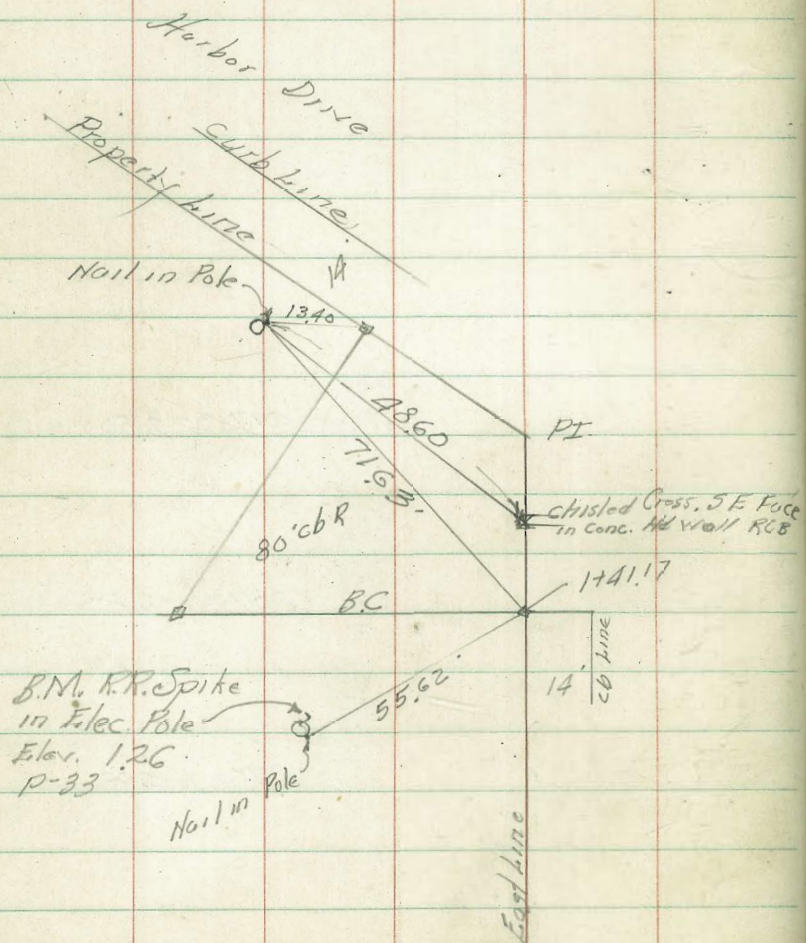 Harbor Drive
Curb Line
Property Line
14
Nail in Pole
13.40
48.60
PI.
71.63
chisled Cross. SE Face
in Conc. Hd Wall RCB
80' cb R
1+41.17
B.C
cb Line
14'
55.62
B.M. R.R. Spike
in Elec. Pole
Elev. 1.26
P-33
Nail in Pole
East Line